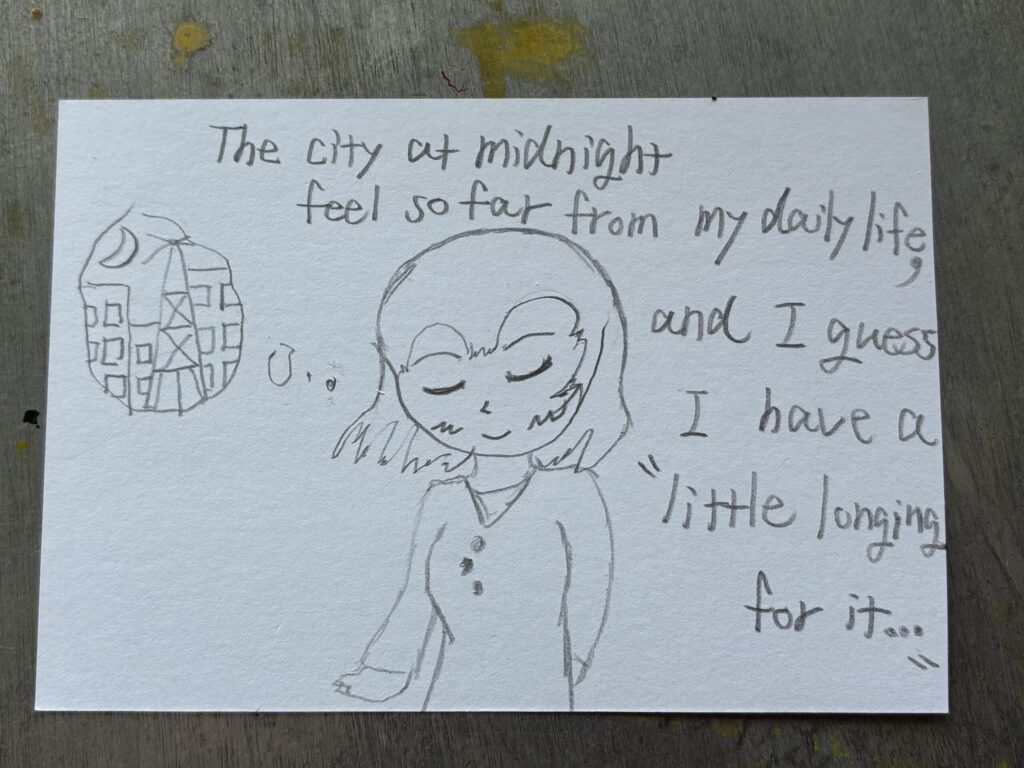 The city at midnight
feel so far from my daily life,
and I guess
I have a
"little longing
for it..."